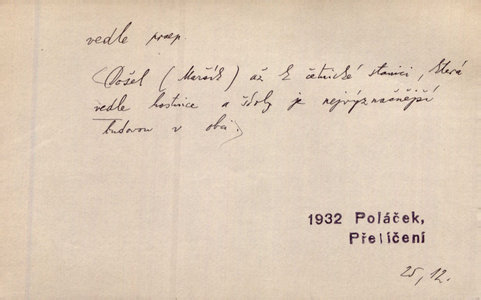 vedle praep.
(Došel (Mařík) až k četnické stanici, která
vedle hostince a školy je nejvýznačnější
budovou v obci.)
1932 Poláček,
Přelíčení
25, 12.